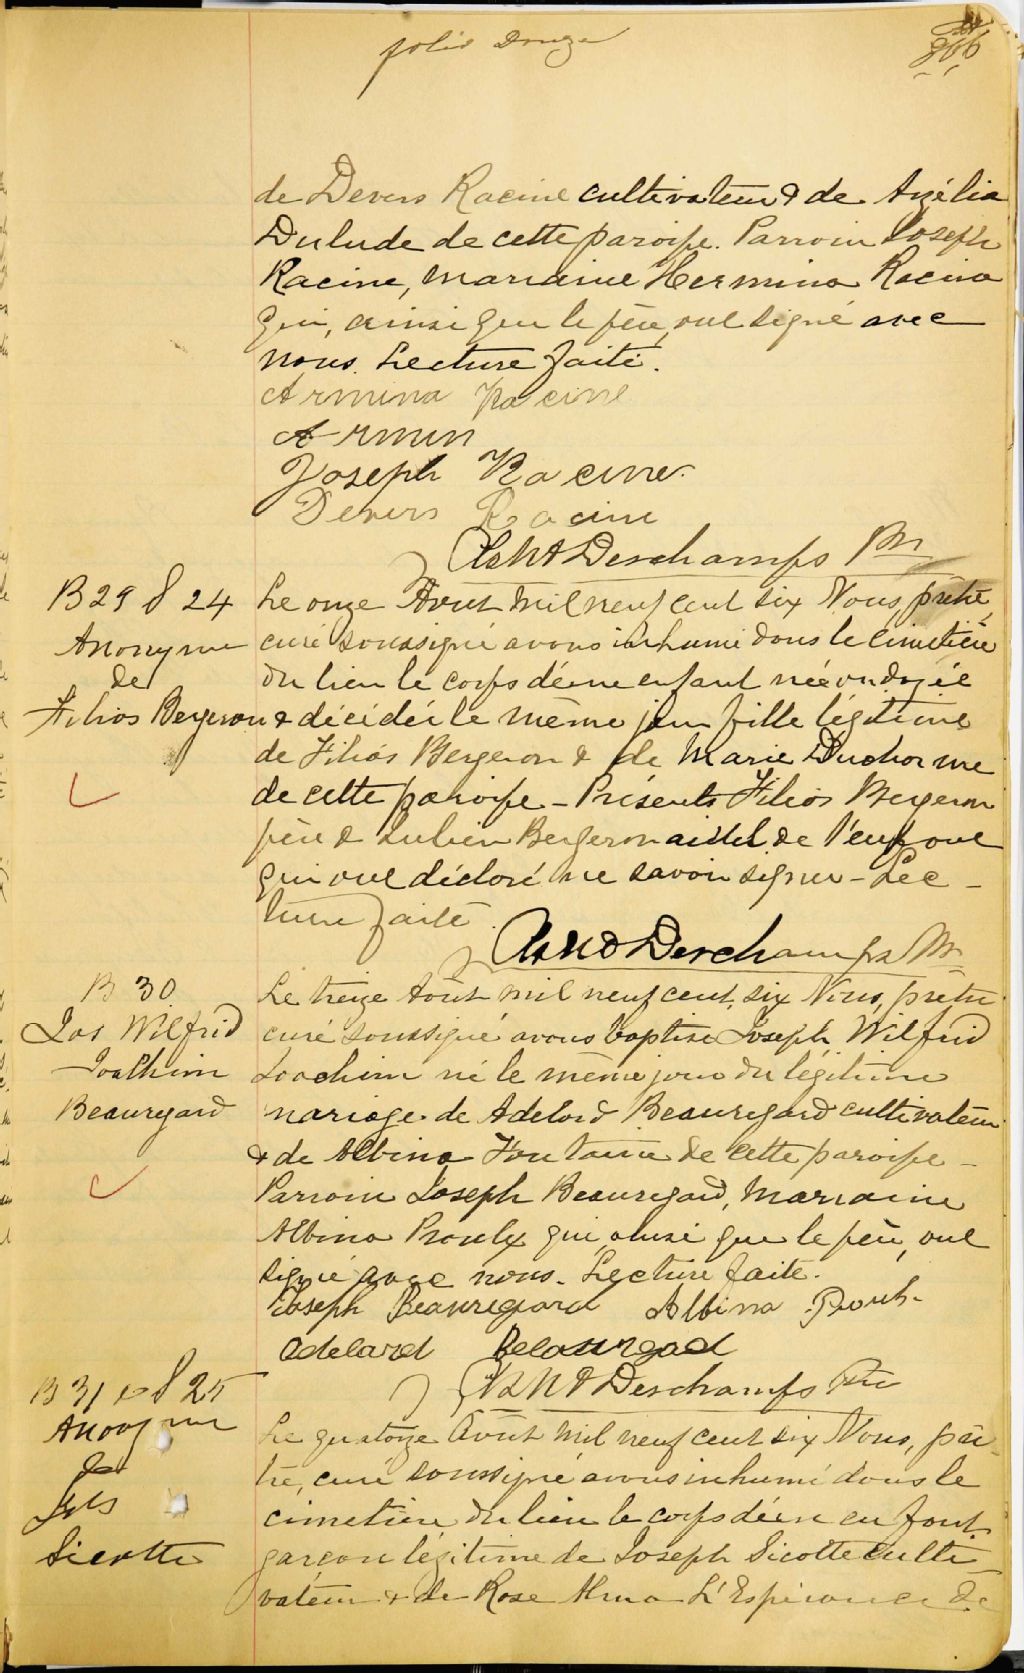 folio Douze
de Devers Racine cultivateur & de Azélia
Dulude de cette paroisse. Parrain Joseph
Racine, marraine Hermina Racine
qui, ainsi que le père, ont signé avec
nous. Lecture faite.
Armina Racine
Armin
Joseph Racine
Devers Racine
Deschamps Ptre
B 29 S 24
Anonyme
de
Filias Bergeron
Le onze Août mil neuf cent six Nous, prêtre,
curé soussigné avons inhumé dans le cimetière
du lieu le corps d'une enfant née ondoyée
& décédée le même jour fille légitime
de Filias Bergeron & de Marie Ducharme
de cette paroisse - Présents Filias Bergeron
père & Lubien Bergeron aieul de l'enfant
qui ont déclaré ne savoir signer - Lec -
ture faite.
Deschamps Ptre
B 30
Jos Wilfrid
Joachim
Beauregard
Le treize Août mil neuf cent six Nous, prêtre
curé soussigné avons baptisé Joseph Wilfrid
Joachim né le même jour du légitime
mariage de Adelard Beauregard cultivateur
& de Albina Fontaine de cette paroisse -
Parrain Joseph Beauregard, marraine
Albina Proulx qui, ainsi que le père, ont
signé avec nous. Lecture faite.
Joseph Beauregard Albina Proulx
Adelard Beauregard
Deschamps Ptre
B 31 & S 25
Anonyme
de
Jos
Sicotte
Le quatorze Août mil neuf cent six Nous, prê-
tre, curé soussigné avons inhumé dans le
cimetière du lieu le corps d'un enfant
garçon légitime de Joseph Sicotte culti
vateur & de Rose Alma L'Espérance de